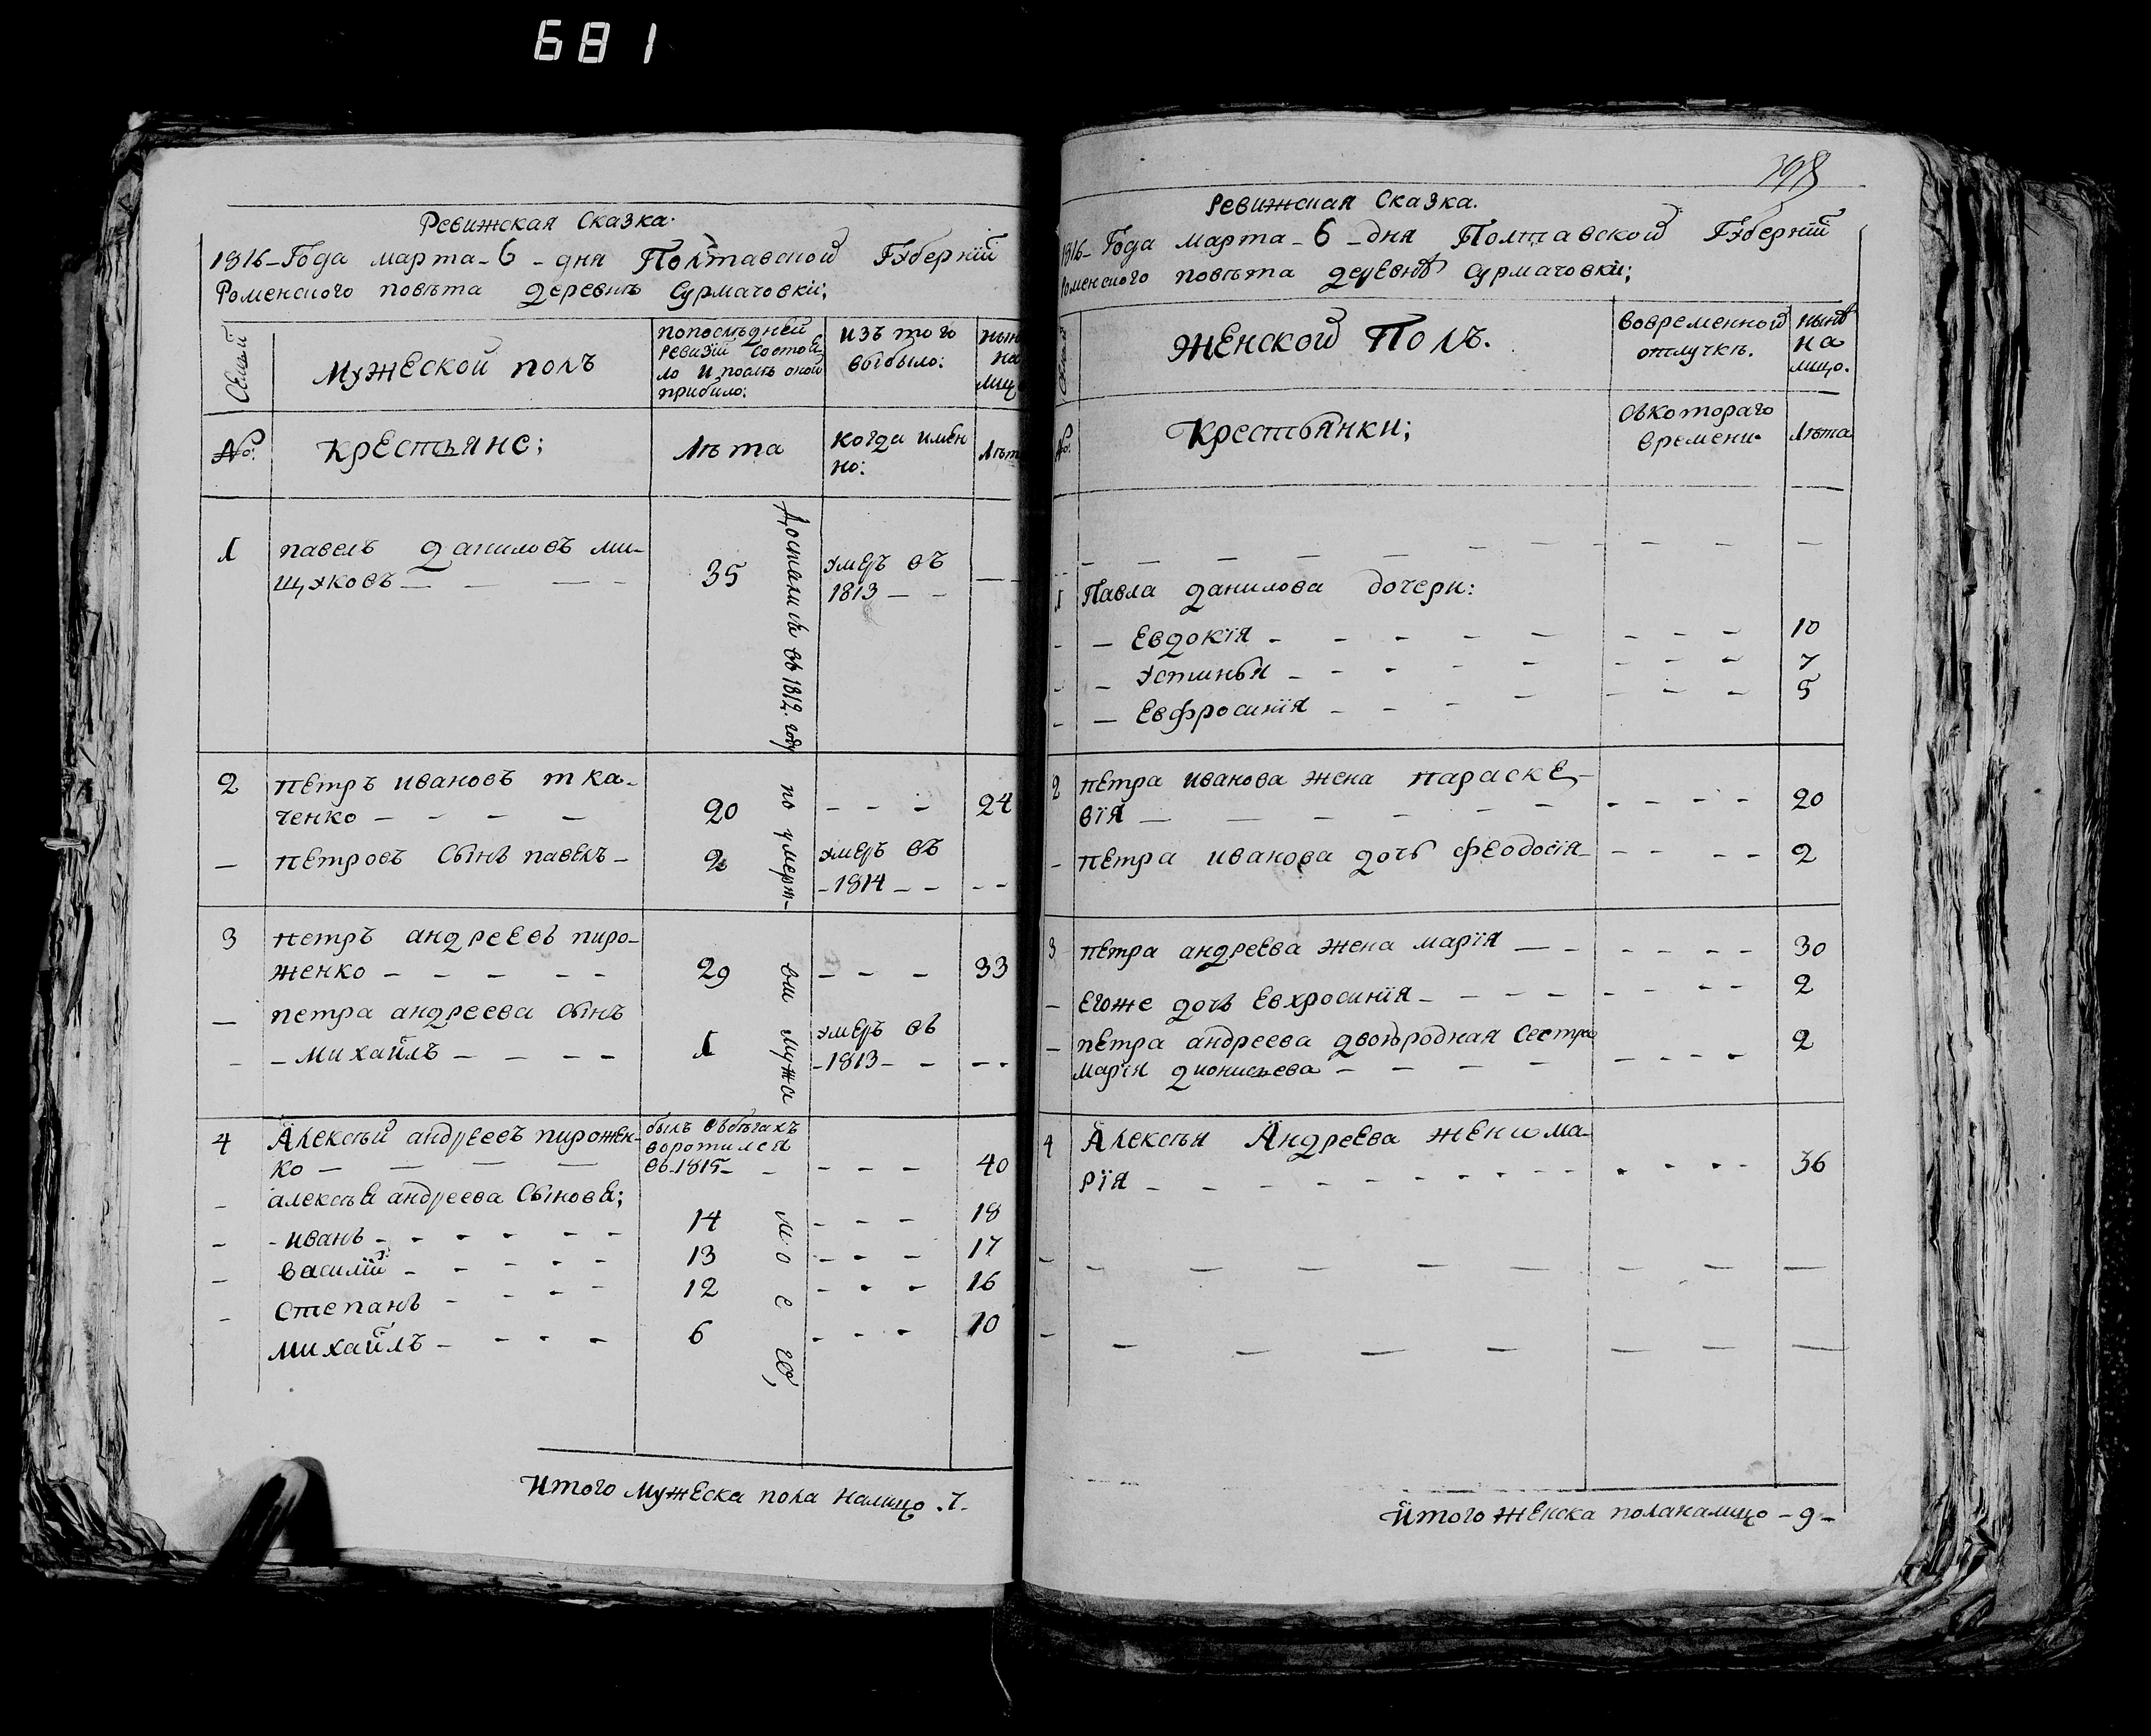 681
Ревижская Сказка.
1816-Года марта-6-дня Полтавской Гȣбернїй
Роменского повѣта деревнѣ Сурмачовки;
Семьи
Мужеской полъ
попослѣдней
ревизїй состоя-
ло и послѣ оной
прибило:
изъ того
выбыло:
нынѣ
на
лицо
№:
крестьяне;
Лѣта
когда имен
но:
Лѣта
1
павелъ даниловъ ми-
щȣковъ
35
ȣмеръ въ
1813
2
петръ ивановъ тка-
ченко
20
24
петровъ сынъ павелъ
2
ȣмеръ въ
1814
3
петръ андреевъ пиро-
женко
29
33
петра андреева сынъ
михайлъ
1
ȣмеръ въ
1813
4
Алексѣй андреевъ пирожен-
ко
былъ въ бѣгахъ
воротился
въ-1815-
40
алексѣя андреева сыновя;
иванъ 14 18
василїй 13 17
степанъ 12 16
михайлъ 6 10
Достались въ 1812. году по умерт-
вїи мужа моего,
Итого мужеска пола налицо .7.
398
Ревижская Сказка.
1816-Года марта-6-дня Полтавской Гȣбернїй
Роменского повѣта деревнѣ сурмачовки;
Семьи
Женской Полъ.
вовременной
отлучкѣ.
нынѣ
на
лицо.
№:
Крестьянки;
съкотораго
времени.
лѣта
1
Павла данилова дочери:
Евдокїя 10
ȣстинья 7
Евфросинїя 5
2
петра иванова жена параске-
вїя 20
петра иванова дочь феодосїя 2
3
петра андреева жена марїя 30
егоже дочь евхросинїя 2
петра андреева двоюродная сестра
марїя дионисьева 2
4
Алексѣя Андреева жена ма-
рїя 36
Итого женска поланалицо -9-